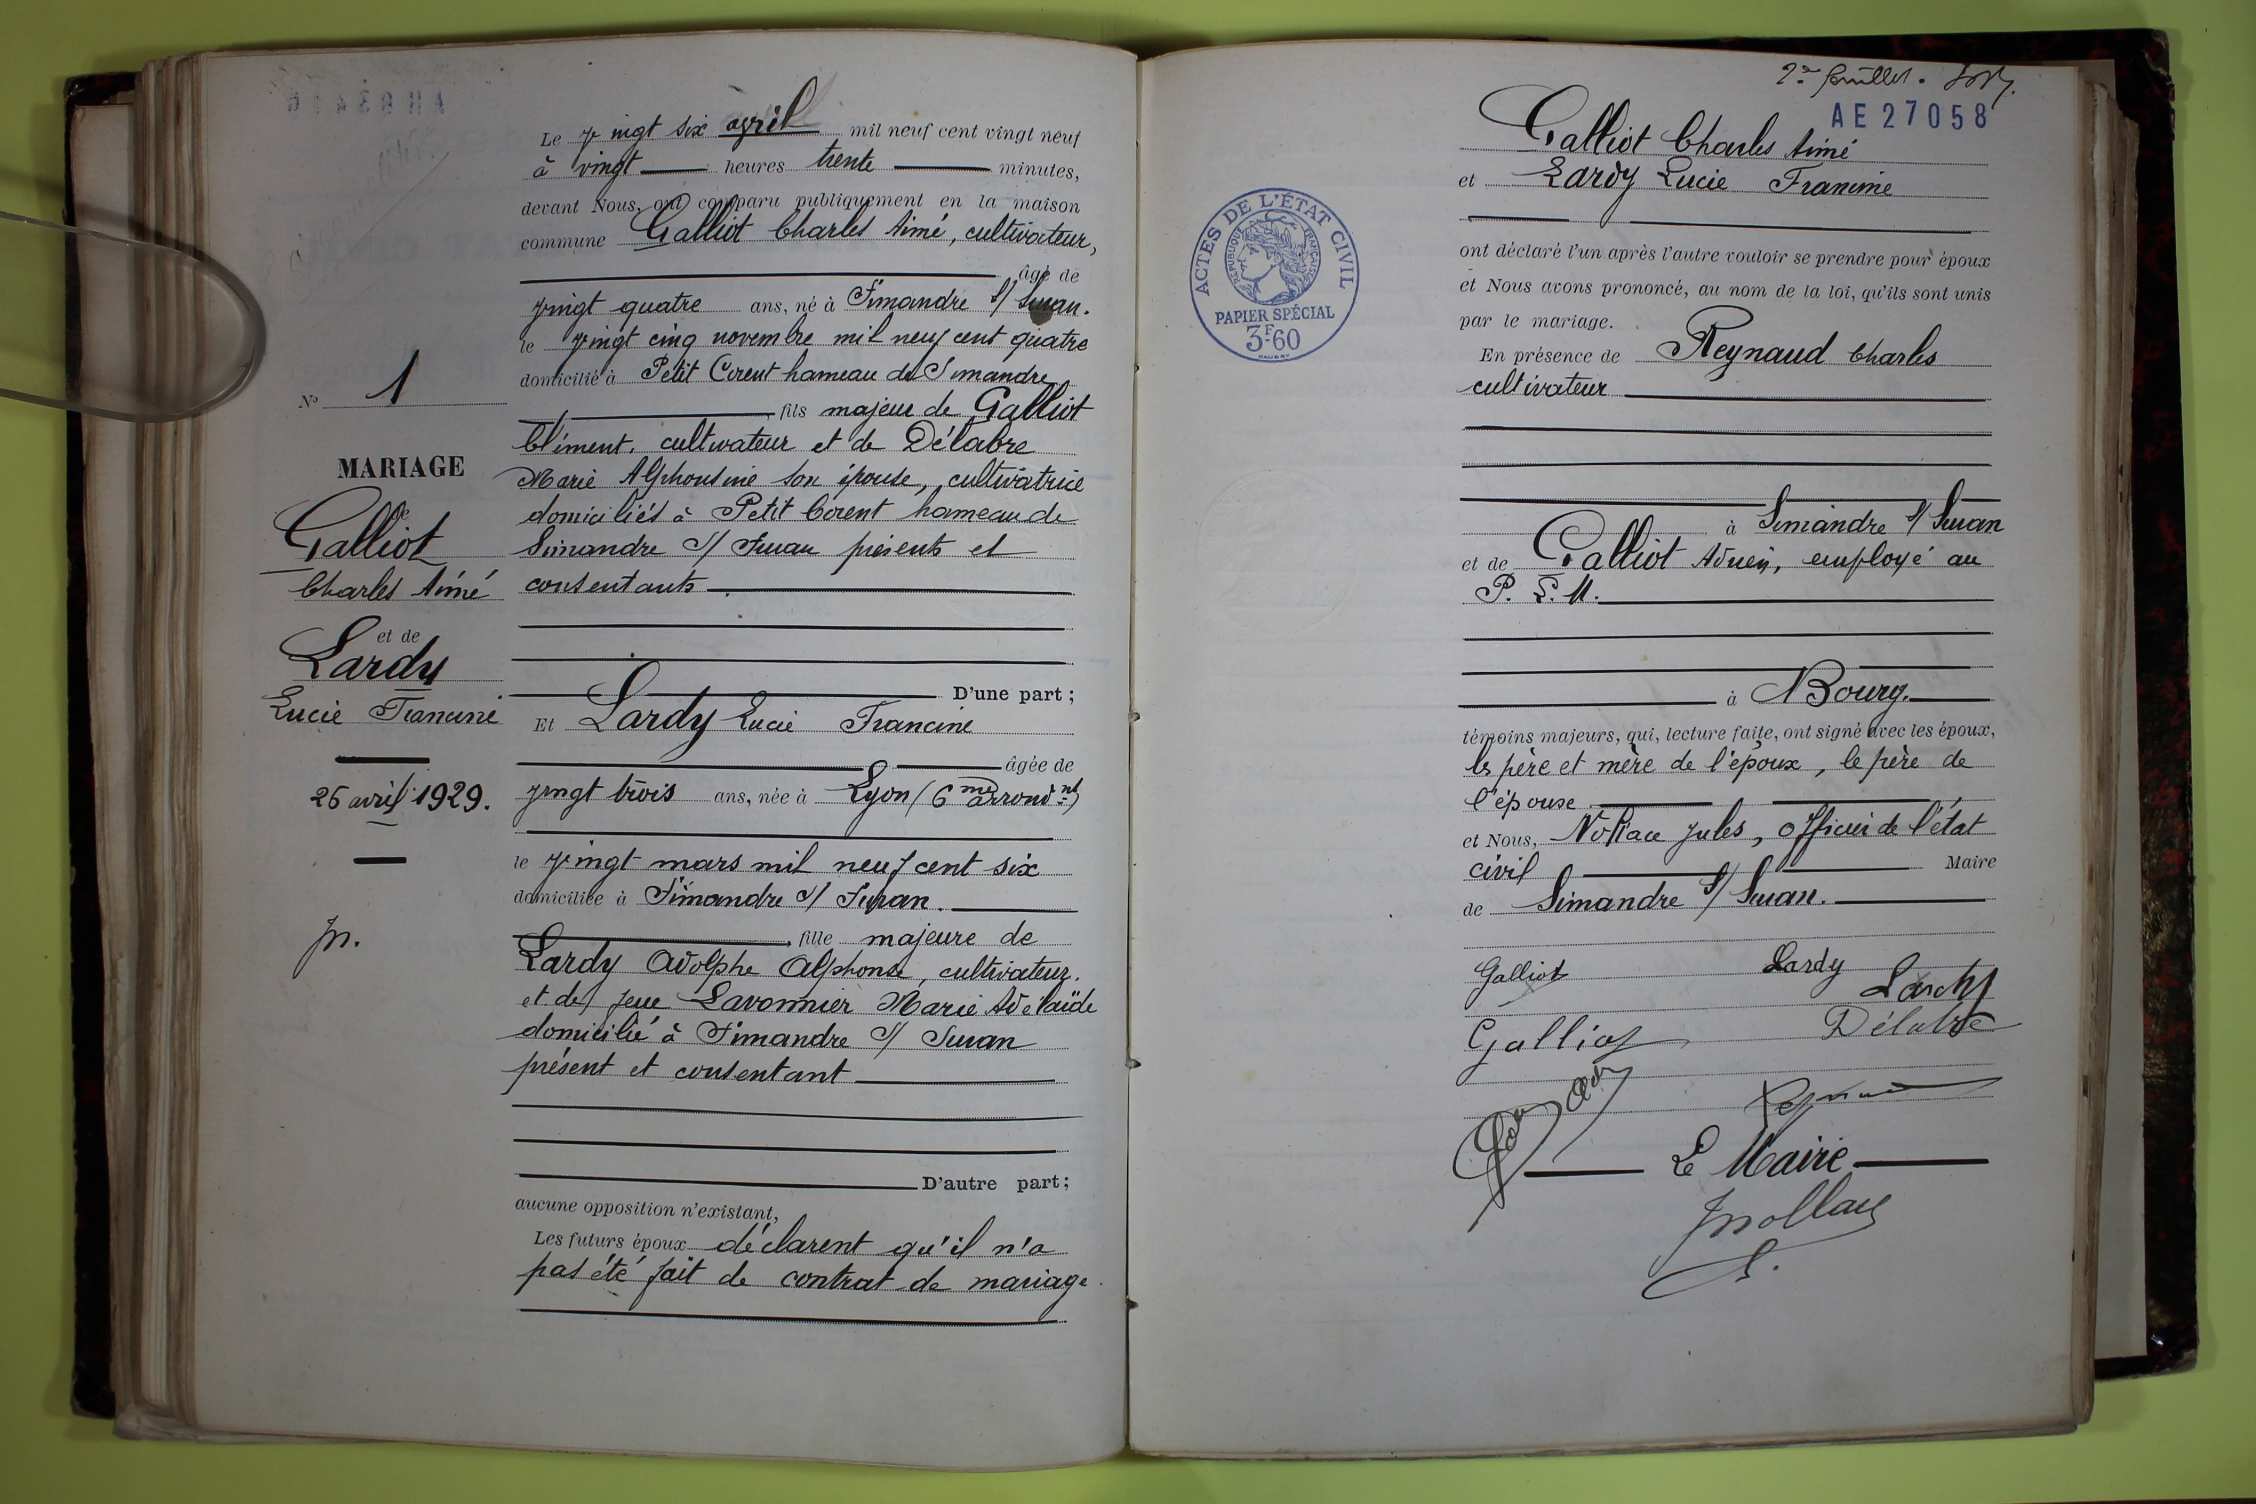 Le vingt six avril mil neuf cent vingt neuf
à vingt heures trente minutes,
devant Nous, ont comparu publiquement en la maison
commune Galliot Charles Aimé, cultivateur,
âgé de
vingt quatre ans, né à Simandre s/ Suran.
le vingt cinq novembre mil neuf cent quatre
domicilié à Petit Corent hameau de Simandre
fils majeur de Galliot
Clément, cultivateur et de Délabre
Marie Alphonsine son épouse, cultivatrice
domiciliés à Petit Corent hameau de
Simandre s/ Suran présents et
consentants
D'une part;
Et Lardy Lucie Francine
âgée de
vingt trois ans, née à Lyon (6me arrondnt)
le vingt mars mil neuf cent six
domiciliée à Simandre s/ Suran.
fille majeure de
Lardy Adolphe Alphonse, cultivateur.
et de feue Lavonnier Marie Adélaïde
domicilié à Simandre s/ Suran
présent et consentant
D'autre part;
aucune opposition n'existant,
Les futurs époux déclarent qu'il n'a
pas été fait de contrat de mariage.
No 1
MARIAGE
de
Galliot
Charles Aimé
et de
Lardy
Lucie Francine
26 avril 1929.
2e feuillet.
AE27058
Galliot Charles Aimé
et Lardy Lucie Francine
ont déclaré l'un après l'autre vouloir se prendre pour époux
et Nous avons prononcé, au nom de la loi, qu'ils sont unis
par le mariage.
En présence de Reynaud Charles
cultivateur
à Simandre s/ Suran
et de Galliot Adrien, employé au
P. L. M.
à Bourg.
témoins majeurs, qui, lecture faite, ont signé avec les époux,
les père et mère de l'époux, le père de
l'épouse
et Nous, Nollace Jules, officier de l'état
civil Maire
de Simandre s/ Suran.
Galliot Lardy
Lardy
Galliot Délabre
Reynaud
Le Maire
ACTES DE L'ÉTAT CIVIL
RÉPUBLIQUE FRANÇAISE
PAPIER SPÉCIAL
3F.60